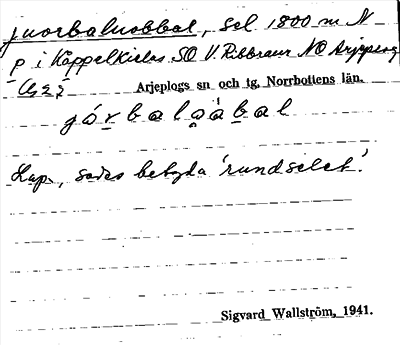 juorbaluobbal, sel 1800 m N
p i Kappelkielas SO V. Ribbraur NO Arjeplog
Arjeplogs sn och tg, Norrbottens län.
Lap., sades betyda 'rundselet'.
Sigvard Wallström, 1941.